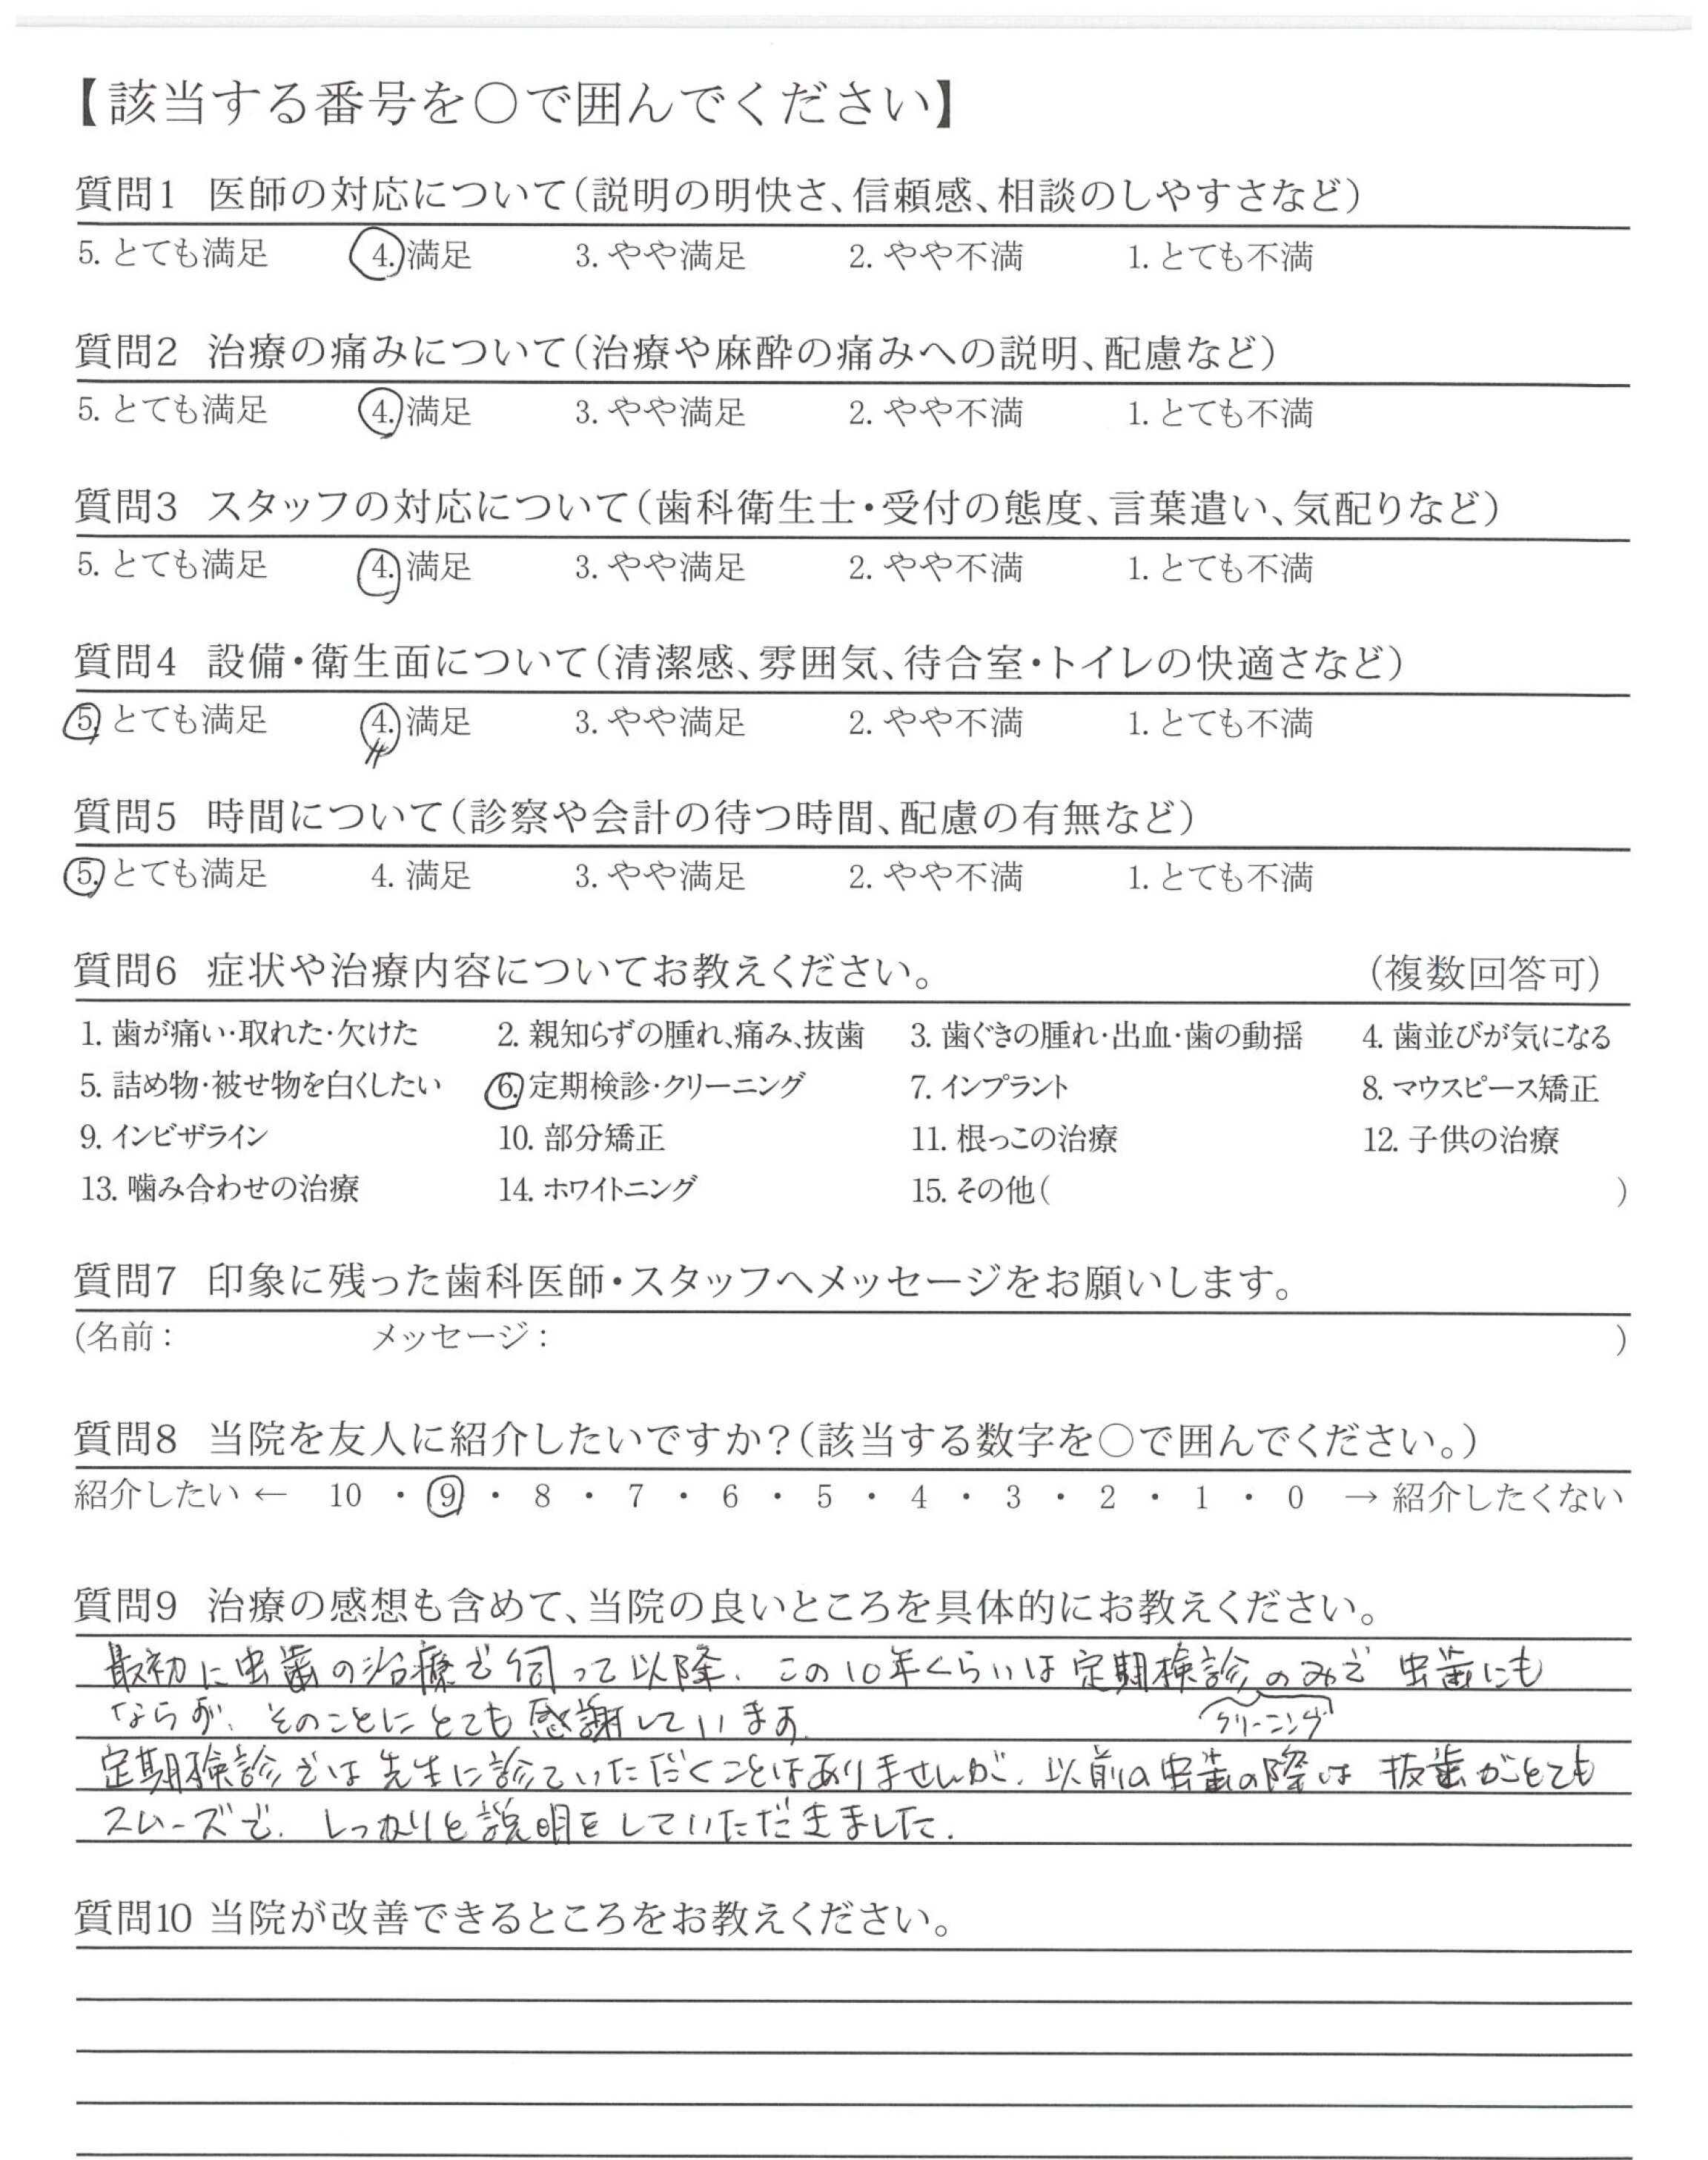 【該当する番号を○で囲んでください】
質問1 医師の対応について(説明の明快さ、信頼感、相談のしやすさなど)
5. とても満足 4. 満足 3. やや満足 2. やや不満 1. とても不満
質問2 治療の痛みについて(治療や麻酔の痛みへの説明、配慮など)
5. とても満足 4. 満足 3. やや満足 2. やや不満 1. とても不満
質問3 スタッフの対応について(歯科衛生士・受付の態度、言葉遣い、気配りなど)
5. とても満足 4. 満足 3. やや満足 2. やや不満 1. とても不満
質問4 設備・衛生面について(清潔感、雰囲気、待合室・トイレの快適さなど)
5. とても満足 4. 満足 3. やや満足 2. やや不満 1. とても不満
質問5 時間について(診察や会計の待つ時間、配慮の有無など)
5. とても満足 4. 満足 3. やや満足 2. やや不満 1. とても不満
質問6 症状や治療内容についてお教えください。 (複数回答可)
1. 歯が痛い・取れた・欠けた 2. 親知らずの腫れ、痛み、抜歯 3. 歯ぐきの腫れ・出血・歯の動揺 4. 歯並びが気になる
5. 詰め物・被せ物を白くしたい 6. 定期検診・クリーニング 7. インプラント 8. マウスピース矯正
9. インビザライン 10. 部分矯正 11. 根っこの治療 12. 子供の治療
13. 噛み合わせの治療 14. ホワイトニング 15. その他( )
質問7 印象に残った歯科医師・スタッフへメッセージをお願いします。
(名前: メッセージ: )
質問8 当院を友人に紹介したいですか?(該当する数字を○で囲んでください。)
紹介したい ← 10 ・ 9 ・ 8 ・ 7 ・ 6 ・ 5 ・ 4 ・ 3 ・ 2 ・ 1 ・ 0 → 紹介したくない
質問9 治療の感想も含めて、当院の良いところを具体的にお教えください。
最初に虫歯の治療で伺って以降、この10年くらいは定期検診のみで虫歯にも
ならず、そのことにとても感謝しています。 クリーニング
定期検診では先生に診ていただくことはありませんが、以前の虫歯の際は抜歯がとても
スムーズで、しっかりと説明をしていただきました。
質問10 当院が改善できるところをお教えください。